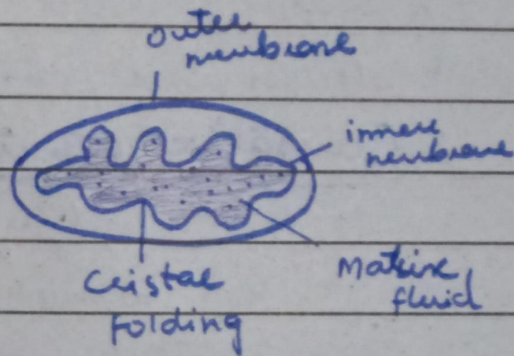 outer
membrane
inner
membrane
Cristae
folding
Matrix
fluid